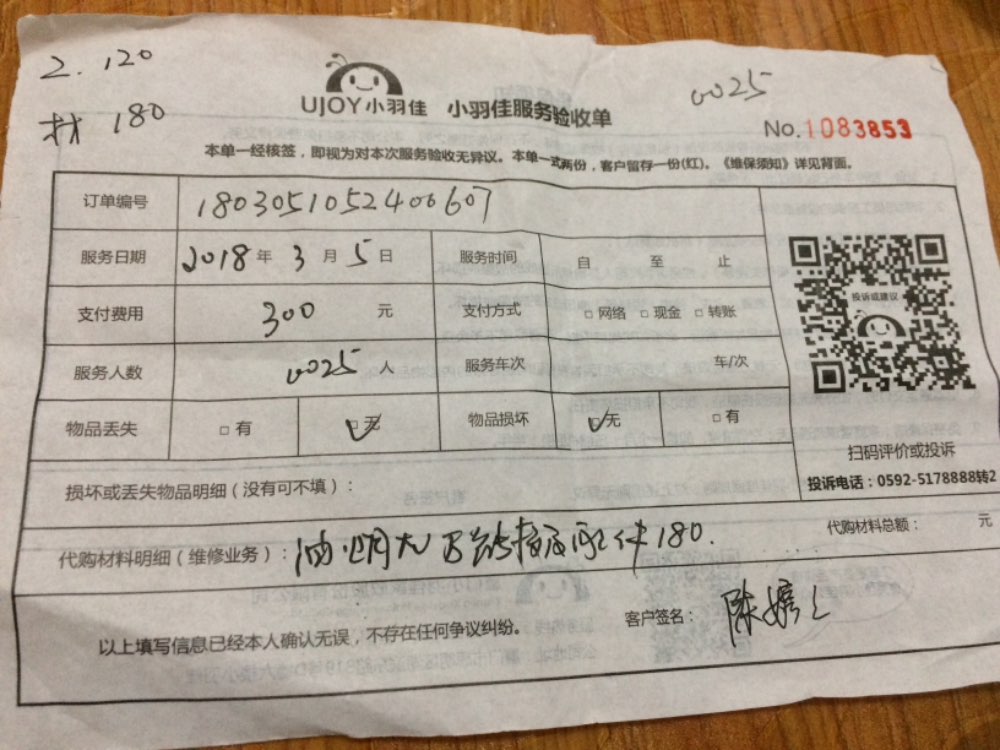 2. 120
材 180
UJOY小羽佳 小羽佳服务验收单
0025
No.1083853
本单一经核签，即视为对本次服务验收无异议。本单一式两份，客户留存一份(红)。《维保须知》详见背面。
订单编号 1803051052400607
服务日期 2018年3月5日 服务时间 自 至 止
支付费用 300 元 支付方式 □网络 □现金 □转账
投诉或建议
服务人数 0025 人 服务车次 车/次
物品丢失 □有 ☑无 物品损坏 ☑无 □有
扫码评价或投诉
投诉电话：0592-5178888转2
损坏或丢失物品明细（没有可不填）：
代购材料总额： 元
代购材料明细（维修业务）：油烟机 配件180.
客户签名：陈
以上填写信息已经本人确认无误，不存在任何争议纠纷。